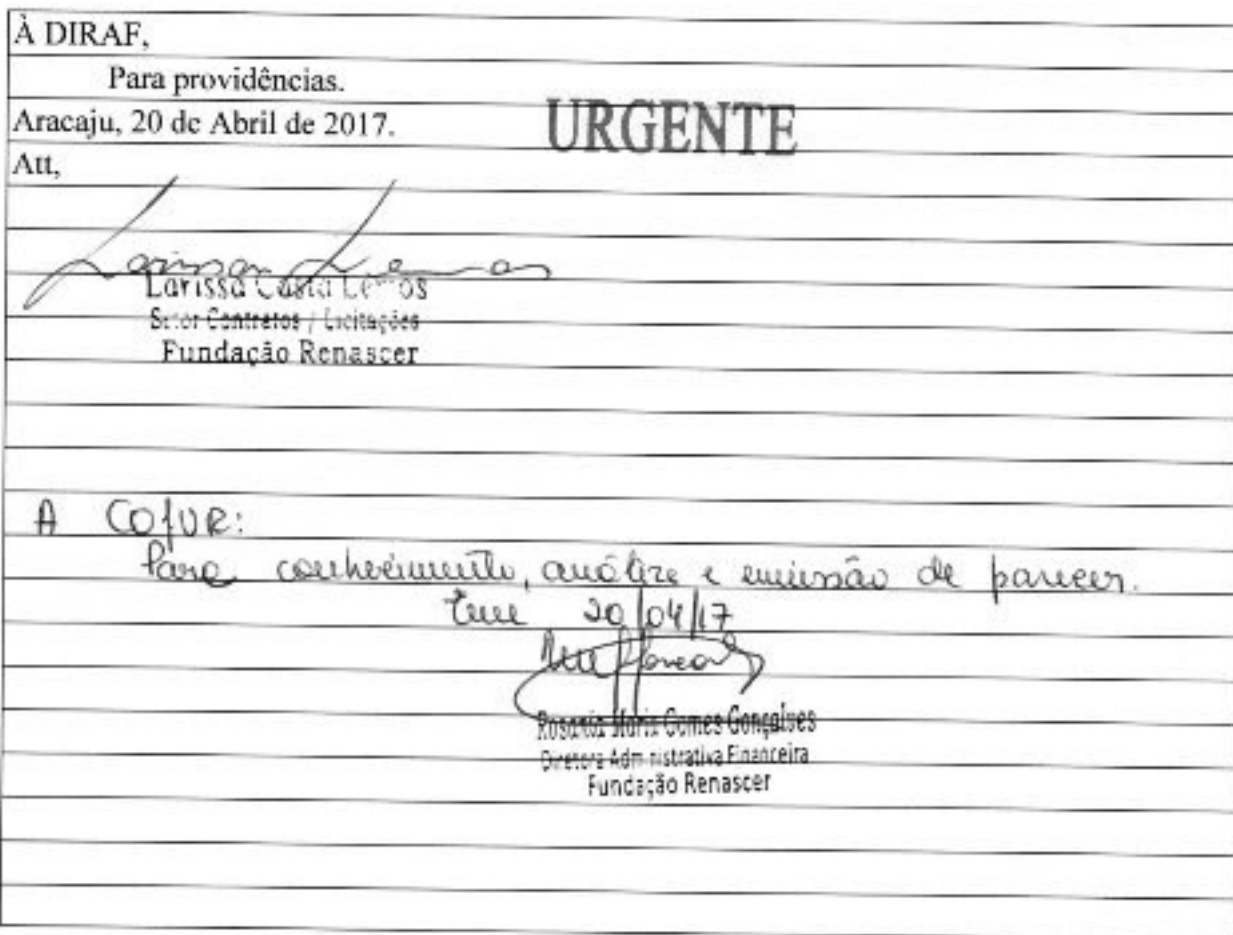 À DIRAF,
Para providências.
Aracaju, 20 de Abril de 2017.
URGENTE
Att,
Larissa Lemos
Larissa Costa Lemos
Setor Contratos / Licitações
Fundação Renascer
A COJUR:
Para conhecimento, análize e emissão de parecer.
Em 20/04/17
Rosania Maria Gomes Gonçalves
Diretora Administrativa Financeira
Fundação Renascer